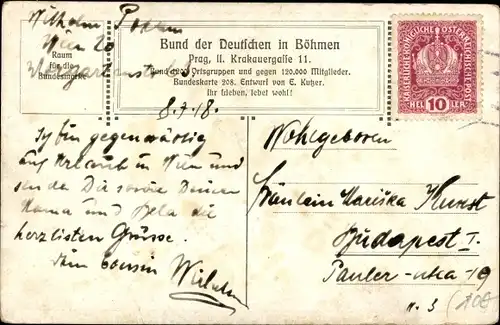 Wilhelm
Wien 20
Raum
für die
Bundesmarke
Bund der Deutschen in Böhmen
Prag, II. Krakauergasse 11.
Ortsgruppen und gegen 120.000 Mitglieder.
Bundeskarte 208. Entwurf von E. Kutzer.
Ihr Lieben, lebet wohl!
8.7.18.
KAISERLICHE KÖNIGLICHE ÖSTERREICHISCHE POST
HEL 10 LER
Ich bin gegenwärtig
auf Urlaub in Wien und
sende Dir sowie Deiner
Mama und Bela die
herzlisten Grüsse.
Dein cousin
Wilhelm
Wohlgeboren
Fräulein Mariska Kunst
Budapest I.
Pauler-utca 19
II. 3